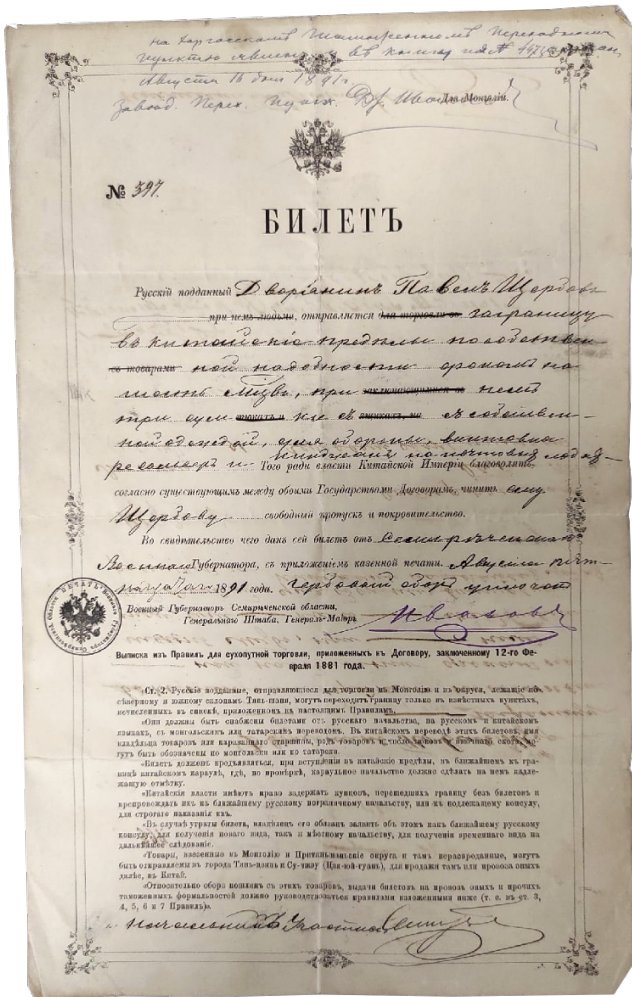 на Хоргосскомъ Таможенномъ Переходномъ
пунктѣ явленъ и въ книгу подъ №
Августа 16 дня 1891 г.
Завѣд. Перех. Пункт.
Для Монголіи.
№ 397.
БИЛЕТЪ
Русскій подданный Дворянинъ Павелъ Щербовъ
при немъ людьми, отправляется для торговли въ заграницу
въ китайскіе предѣлы по собствен-
съ товарами ной надобности срокомъ на
шесть мѣсяц., при заключающимися въ немъ
три съ собствен-
ной одеждой, для обороны, винтовка
револьверъ и кинжалъ
Того ради власти Китайской Имперіи благоволятъ,
согласно существующимъ между обоими Государствами Договорамъ, чинить ему
Щербову свободный пропускъ и покровительство.
Во свидѣтельство чего данъ сей билетъ отъ Семирѣченскаго
Военнаго Губернатора, съ приложеніемъ казенной печати. Августа пят-
1891 года. Гербовый сборъ уплоченъ
Военный Губернаторъ Семирѣченской области,
Генеральнаго Штаба, Генералъ-Маіоръ Ивановъ
ПЕЧАТЬ Военнаго Губернатора Семирѣченской Области
Выписка изъ Правилъ для сухопутной торговли, приложенныхъ къ Договору, заключенному 12-го Фе-
враля 1881 года.
«Ст. 2. Русскіе подданные, отправляющіеся для торговли въ Монголію и въ округа, лежащіе по
сѣверному и южному склонамъ Тянь-шаня, могутъ переходить границу только въ извѣстныхъ пунктахъ,
исчисленныхъ въ спискѣ, приложенномъ къ настоящимъ Правиламъ.
«Они должны быть снабжены билетами отъ русскаго начальства, на русскомъ и китайскомъ
языкахъ, съ монгольскимъ или татарскимъ переводомъ. Въ китайскомъ переводѣ этихъ билетовъ, имя
владѣльца товаровъ или караваннаго старшины, родъ товаровъ и число скота мо-
гутъ быть обозначены по монгольски или по татарски.
«Билетъ долженъ предъявляться, при вступленіи въ китайскіе предѣлы, въ ближайшемъ къ гра-
ницѣ китайскомъ караулѣ, гдѣ, по провѣркѣ, караульное начальство должно сдѣлать на немъ надле-
жащую отмѣтку.
«Китайскія власти имѣютъ право задержать купцовъ, перешедшихъ границу безъ билетовъ и
препровождать ихъ къ ближайшему русскому пограничному начальству, или къ подлежащему консулу,
для строгаго наказанія ихъ.
«Въ случаѣ утраты билета, владѣлецъ его обязанъ заявить объ этомъ какъ ближайшему русскому
консулу, для полученія новаго вида, такъ и мѣстному начальству, для полученія временнаго вида на
дальнѣйшее слѣдованіе.
«Товары, ввезенные въ Монголію и Притяньшаньскіе округа и тамъ нераспроданные, могутъ
быть отправляемы въ города Тянь-цзинь и Су-чжоу (Цзя-юй-гуань), для продажи тамъ или провоза оныхъ
далѣе, въ Китай.
«Относительно сбора пошлинъ съ этихъ товаровъ, выдачи билетовъ на провозъ оныхъ и прочихъ
таможенныхъ формальностей должно руководствоваться правилами изложенными ниже (т. е. въ ст. 3,
4, 5, 6 и 7 Правилъ)».
Начальникъ Участка